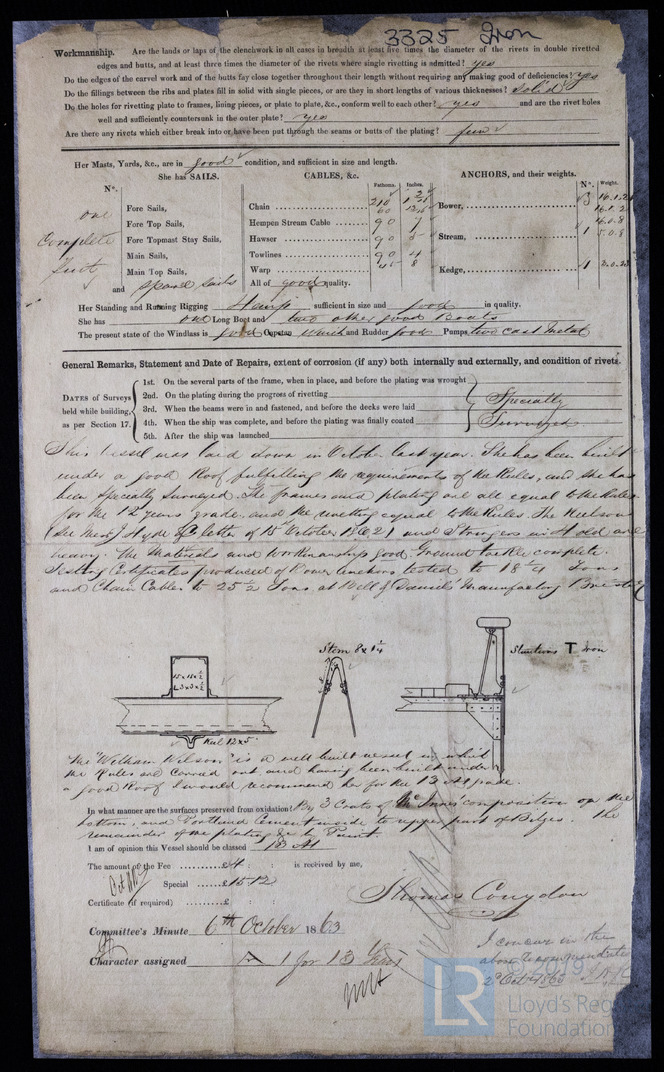 3325 Iron
Workmanship. Are the lands or laps of the clenchwork in all cases in breadth at least five times the diameter of the rivets in double rivetted
edges and butts, and at least three times the diameter of the rivets where single rivetting is admitted? yes
Do the edges of the carvel work and of the butts fay close together throughout their length without requiring any making good of deficiencies? yes
Do the fillings between the ribs and plates fill in solid with single pieces, or are they in short lengths of various thicknesses? Solid
Do the holes for rivetting plate to frames, lining pieces, or plate to plate, &c., conform well to each other? yes and are the rivet holes
well and sufficiently countersunk in the outer plate? yes
Are there any rivets which either break into or have been put through the seams or butts of the plating? few
Her Masts, Yards, &c., are in good condition, and sufficient in size and length.
She has SAILS. CABLES, &c. ANCHORS, and their weights.
N°. Fathoms. Inches. N°. Weight.
one Complete Suit
Fore Sails,
Fore Top Sails,
Fore Topmast Stay Sails,
Main Sails,
Main Top Sails,
and spare sails
Chain 210
Hempen Stream Cable 90 7
Hawser 90 5
Towlines 90 4
Warp 45
All of good quality.
Bower, 3
Stream, 1 5.0.8
Kedge, 1
Her Standing and Running Rigging Hemp sufficient in size and good in quality.
She has one Long Boat and two other good Boats
The present state of the Windlass is good Capstan Winch and Rudder good Pumps two cast Metal
General Remarks, Statement and Date of Repairs, extent of corrosion (if any) both internally and externally, and condition of rivets.
DATES of Surveys held while building, as per Section 17.
1st. On the several parts of the frame, when in place, and before the plating was wrought
2nd. On the plating during the progress of rivetting
3rd. When the beams were in and fastened, and before the decks were laid
4th. When the ship was complete, and before the plating was finally coated
5th. After the ship was launched
Specially
Surveyed
This Vessel was laid down in October last year. She has been built
under a good Roof fulfilling the requirements of the Rules, and she has
been specially surveyed. The frames and plating are all equal to the Rules
for the 12 years grade, and the rivetting equal to the Rules. The Keelson
(See Mess J Hyde & Co letter of 15th October 1862) and Stringers in Hold are
heavy. The Materials and Workmanship good. Ground tackle complete.
Testing Certificates produced of Bower Anchors tested to 18 1/4 Tons
and Chain Cables to 25 1/2 Tons at Daniels' Manufactory
Stem 8 x 1 1/4
Stanchions T Iron
Keel 12 x 5
The "William Wilson" is a well built vessel in which
the Rules are Carried out and having been built under
a good Roof I would recommend her for the 13 A1 grade.
In what manner are the surfaces preserved from oxidation? By 3 Coats of McInnes composition on the
bottom, and Portland Cement inside to upper part of Bilges. The
remainder of the plating &c by Paint.
I am of opinion this Vessel should be classed 13 A1
The amount of the Fee £4 : : is received by me,
Special £15.12
Certificate (if required) £ :
Thomas Congdon
Committee's Minute 6th October 1863
Character assigned A 1 for 13 Years
I concur in the
above recommendation
2 Oct 1863
© 2019
LR
Lloyd's Reg
Foundation